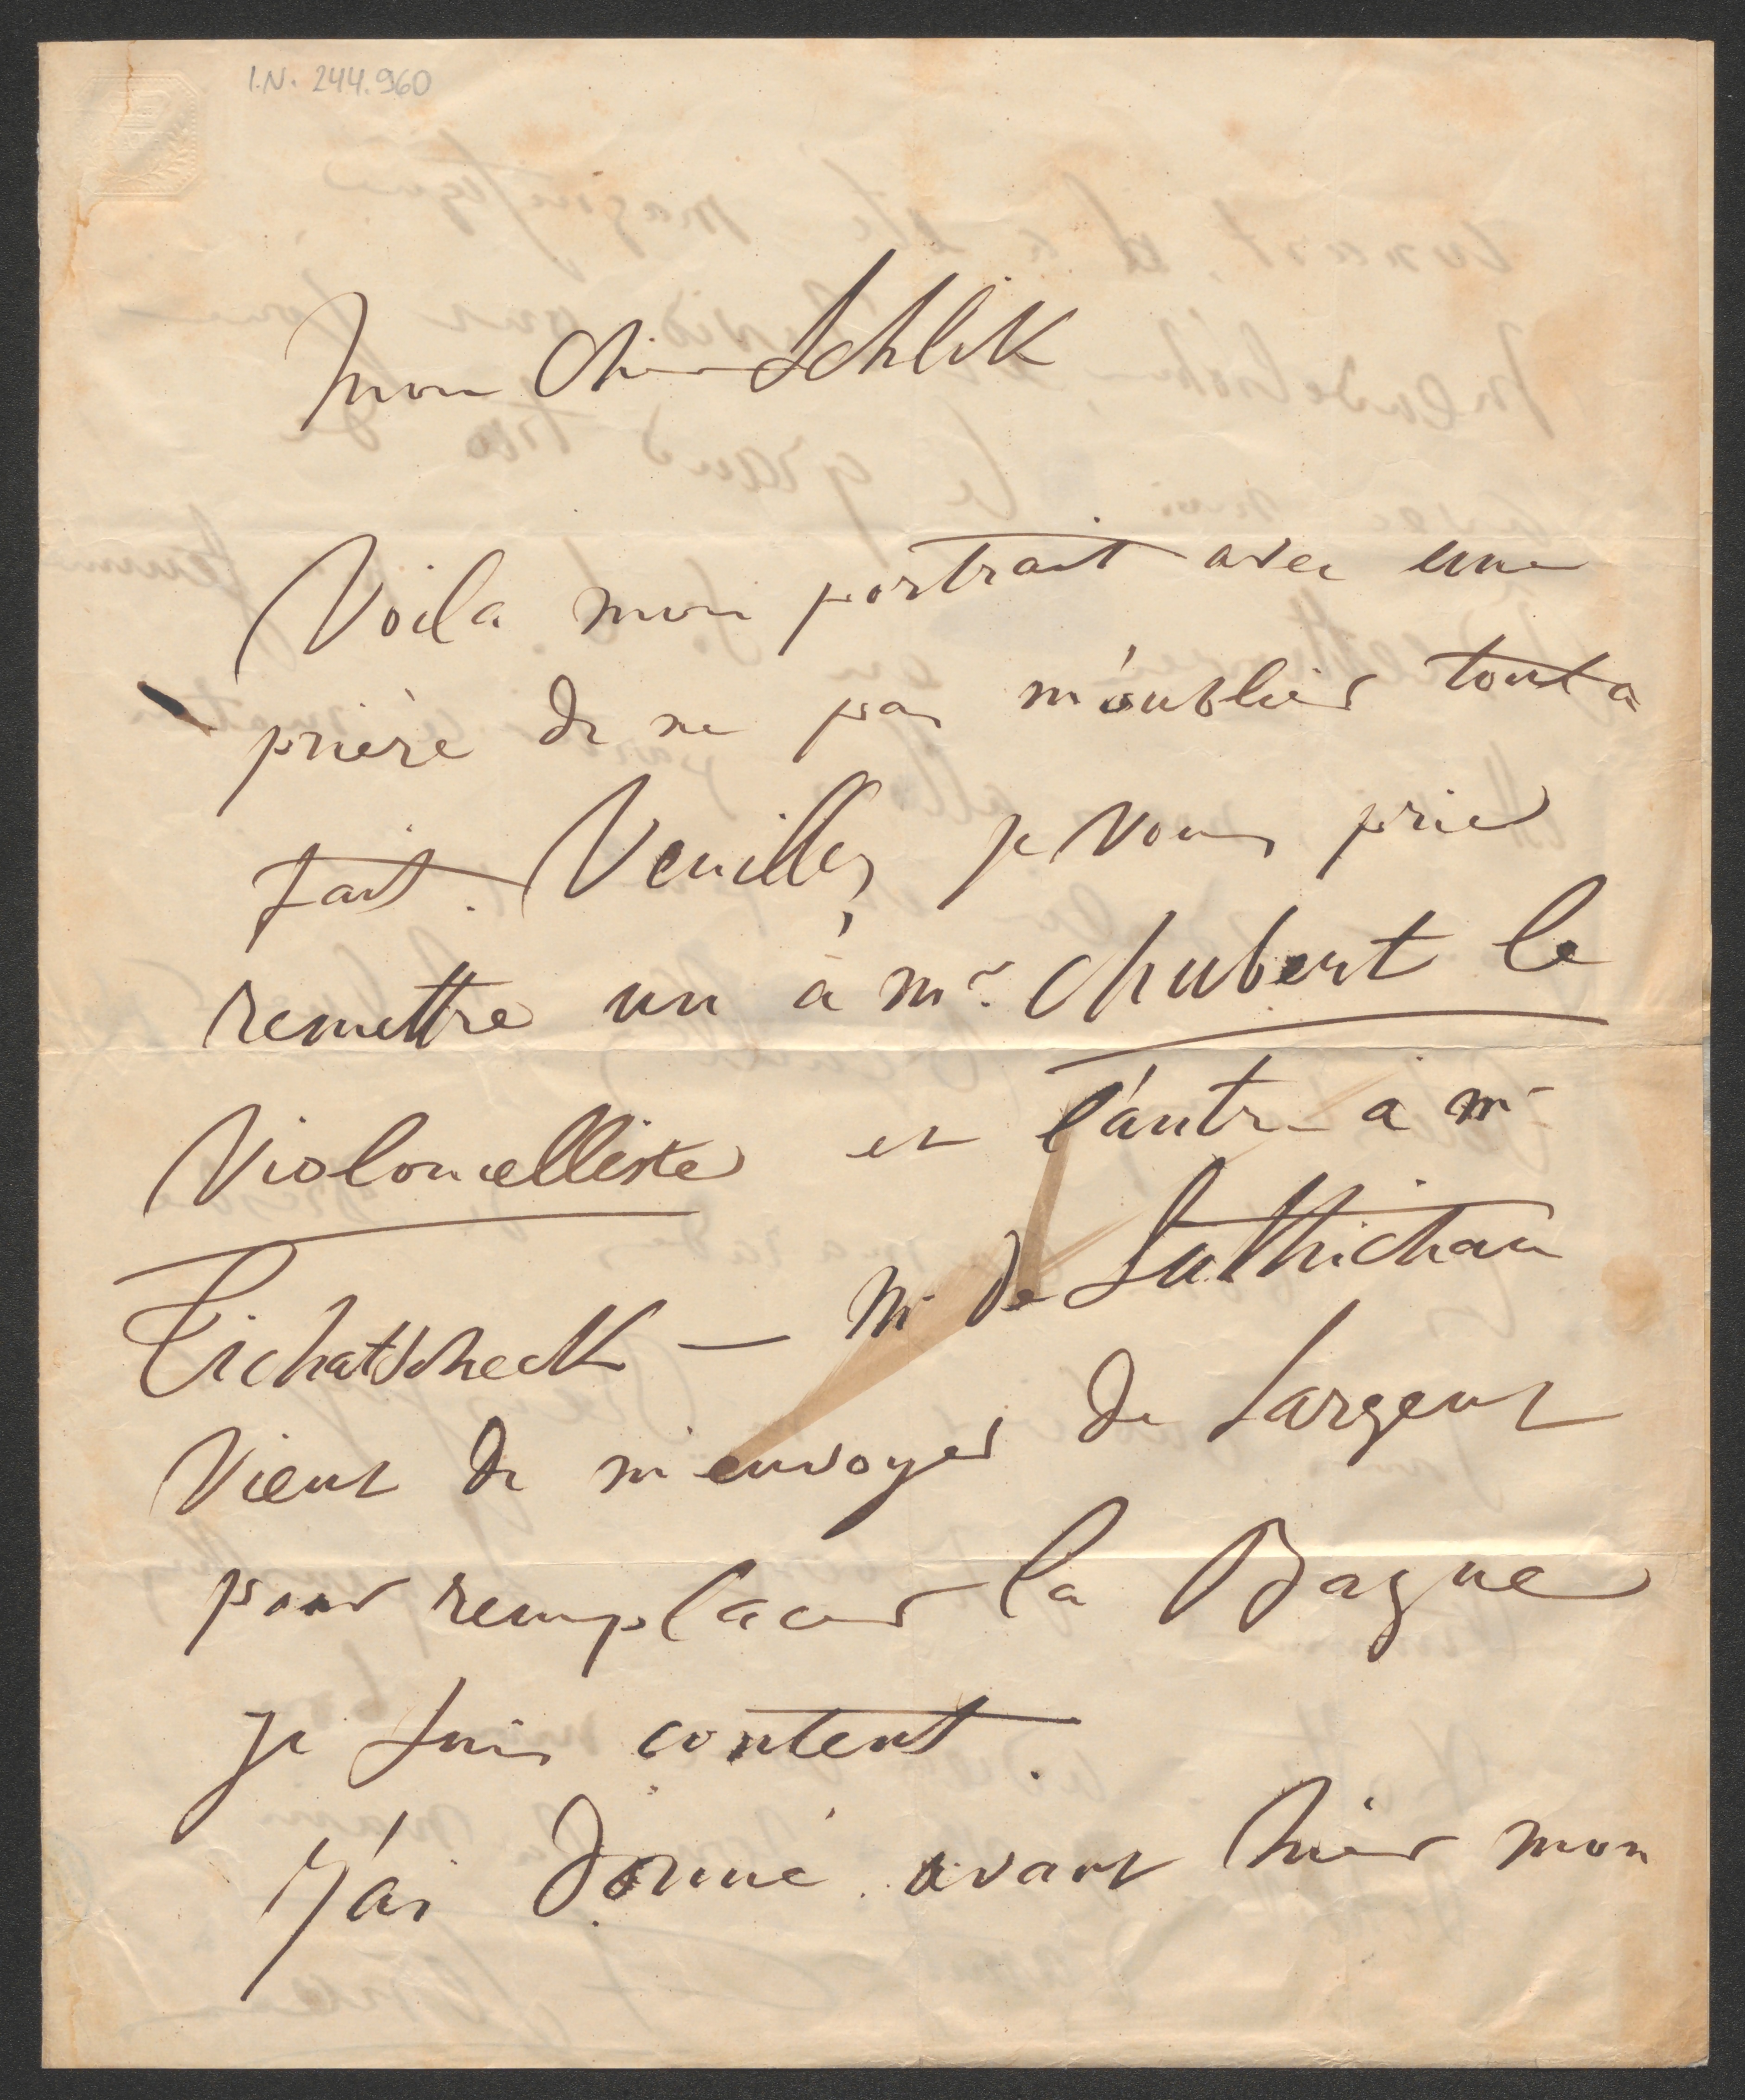 I.N. 244.960
Mon Cher Schlik
Voila mon portrait avec une
prière de ne pas m'oublier tout a
fait. Veuillez je vous prie
remettre un à Mr. Chubert le
Violoncelliste et l'autre a Mr
Tichatscheck — Mr de Luttichau
Vient de m'envoyer de Largent
pour remplacer la Bague
je suis content.
J'ai donné avant hier mon